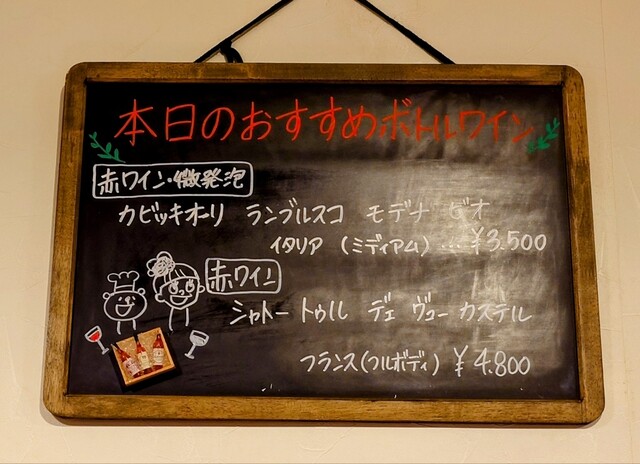 本日のおすすめボトルワイン
赤ワイン・微発泡
カビッキオーリ ランブルスコ モデナ ビオ
イタリア (ミディアム) … ¥3.500
赤ワイン
シャトー トゥル デェ ヴュー カステル
フランス(フルボディ) ¥4.800